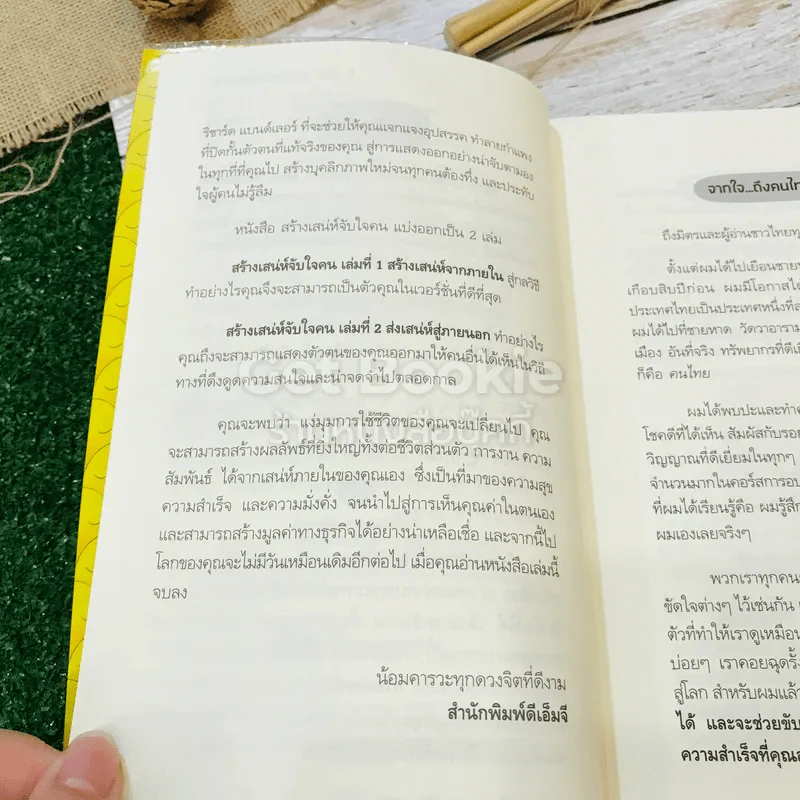 ริชาร์ด แบนด์เลอร์ ที่จะช่วยให้คุณแจกแจงอุปสรรค ทำลายกำแพง
ที่ปิดกั้นตัวตนที่แท้จริงของคุณ สู่การแสดงออกอย่างน่าจับตามอง
ในทุกที่ที่คุณไป สร้างบุคลิกภาพใหม่จนทุกคนต้องทึ่ง และประทับ
ใจผู้คนไม่รู้ลืม
หนังสือ สร้างเสน่ห์จับใจคน แบ่งออกเป็น 2 เล่ม
สร้างเสน่ห์จับใจคน เล่มที่ 1 สร้างเสน่ห์จากภายใน สู่กลวิธี
ทำอย่างไรคุณจึงจะสามารถเป็นตัวคุณในเวอร์ชั่นที่ดีที่สุด
สร้างเสน่ห์จับใจคน เล่มที่ 2 ส่งเสน่ห์สู่ภายนอก ทำอย่างไร
คุณถึงจะสามารถแสดงตัวตนของคุณออกมาให้คนอื่นได้เห็นในวิถี
ทางที่ดึงดูดความสนใจและน่าจดจำไปตลอดกาล
คุณจะพบว่า แง่มุมการใช้ชีวิตของคุณจะเปลี่ยนไป คุณ
จะสามารถสร้างผลลัพธ์ที่ยิ่งใหญ่ทั้งต่อชีวิตส่วนตัว การงาน ความ
สัมพันธ์ ได้จากเสน่ห์ภายในของคุณเอง ซึ่งเป็นที่มาของความสุข
ความสำเร็จ และความมั่งคั่ง จนนำไปสู่การเห็นคุณค่าในตนเอง
และสามารถสร้างมูลค่าทางธุรกิจได้อย่างน่าเหลือเชื่อ และจากนี้ไป
โลกของคุณจะไม่มีวันเหมือนเดิมอีกต่อไป เมื่อคุณอ่านหนังสือเล่มนี้
จบลง
น้อมคารวะทุกดวงจิตที่ดีงาม
สำนักพิมพ์ดีเอ็มจี
Got Bookie
ร้านหนังสือบุ๊คกี้
จากใจ...ถึงคนไท
ถึงมิตรและผู้อ่านชาวไทยทุ
ตั้งแต่ผมได้ไปเยือนชายห
เกือบสิบปีก่อน ผมมีโอกาสได้
ประเทศไทยเป็นประเทศหนึ่งที่ส
ผมได้ไปที่ชายหาด วัดวาอาราม
เมือง อันที่จริง ทรัพยากรที่ดีเยี่
ก็คือ คนไทย
ผมได้พบปะและทำค
โชคดีที่ได้เห็น สัมผัสกับรอย
วิญญาณที่ดีเยี่ยมในทุกๆ
จำนวนมากในคอร์สการอบ
ที่ผมได้เรียนรู้คือ ผมรู้สึก
ผมเองเลยจริงๆ
พวกเราทุกคน
ขัดใจต่างๆ ไว้เช่นกัน
ตัวที่ทำให้เราดูเหมือน
บ่อยๆ เราคอยฉุดรั้ง
สู่โลก สำหรับผมแล้ว
ได้ และจะช่วยขับ
ความสำเร็จที่คุณส